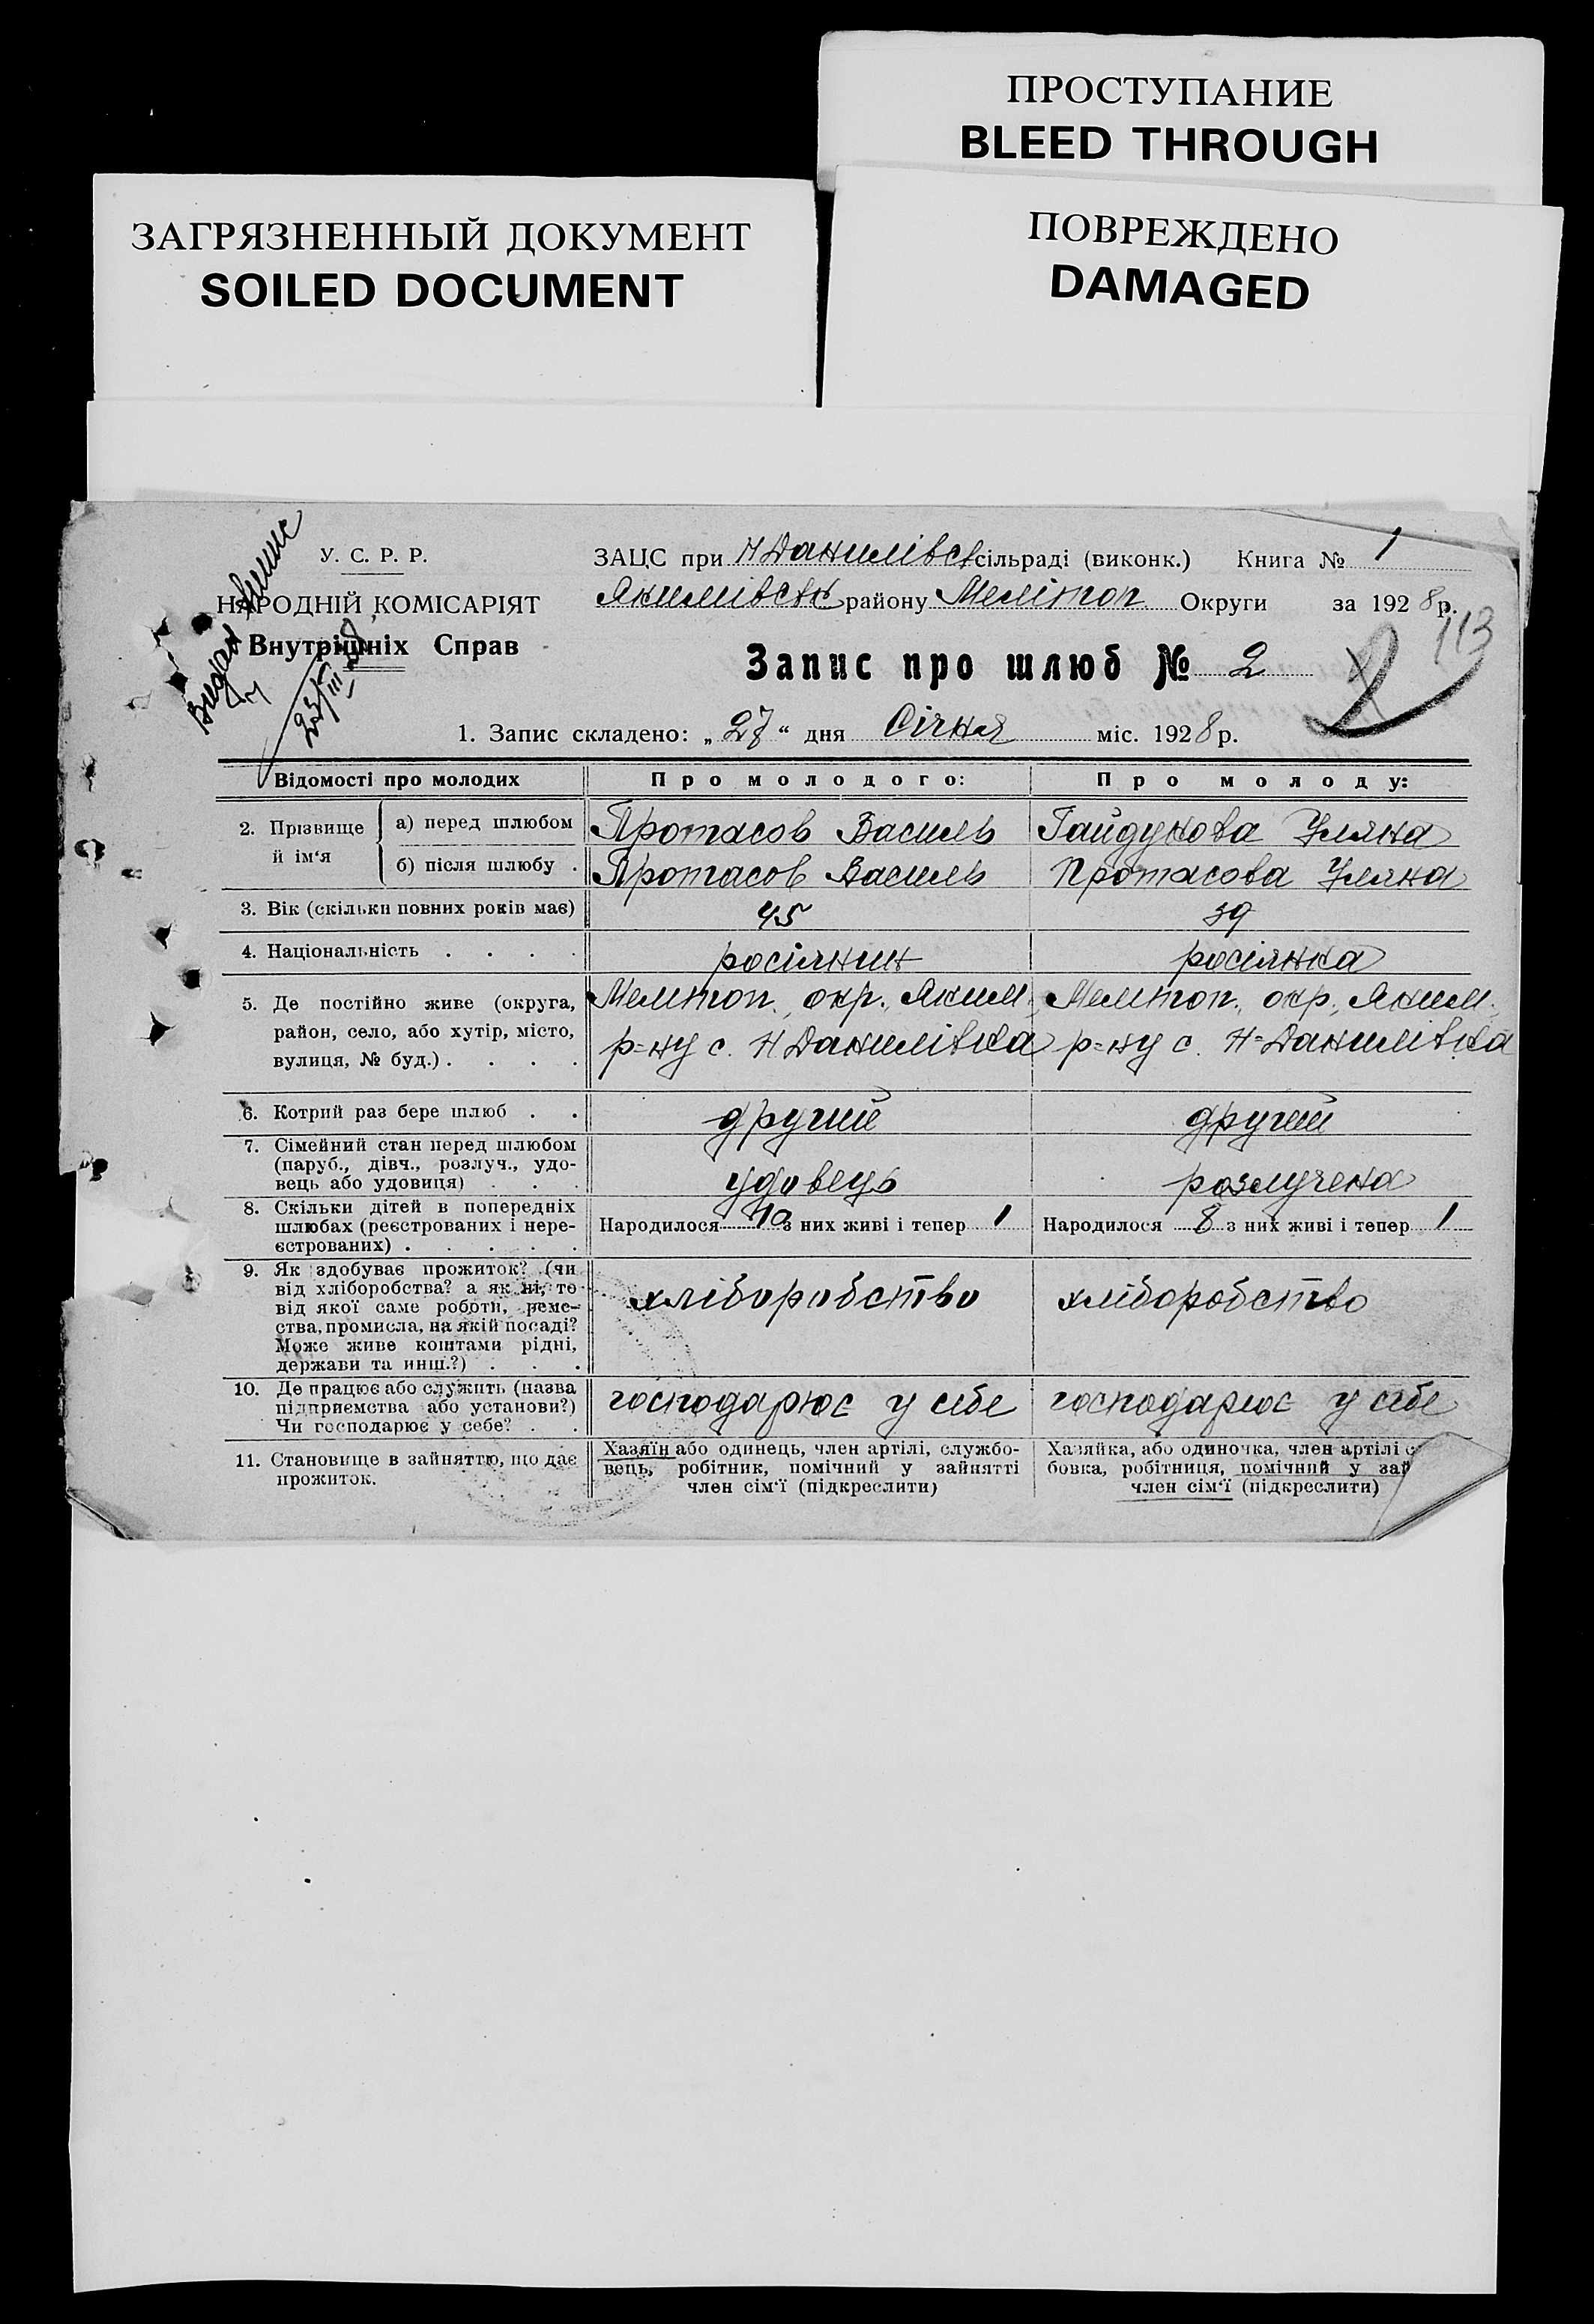 ПРОСТУПАНИЕ
BLEED THROUGH
ЗАГРЯЗНЕННЫЙ ДОКУМЕНТ
SOILED DOCUMENT
ПОВРЕЖДЕНО
DAMAGED
Видан
У. С. Р. Р.
НАРОДНІЙ КОМІСАРІЯТ
Внутрішніх Справ
ЗАЦС при Н Данилівськ сільраді (виконк.) Книга № 1
Якимівськ району Мелітоп Округи за 1928 р.
113
Запис про шлюб № 2
2
1. Запис складено: „27“ дня Січня міс. 1928 р.
Відомості про молодих Про молодого: Про молоду:
2. Прізвище й ім'я
а) перед шлюбом Протасов Василь Гайдукова Уляна
б) після шлюбу . Протасов Василь Протасова Уляна
3. Вік (скільки повних років має) 45 39
4. Національність . . . . росіянин росіянка
5. Де постійно живе (округа, Мелітоп. окр., Яким. Мелітоп. окр., Яким.
район, село, або хутір, місто, р-ну с. Н Данилівка р-ну с. Н-Данилівка
вулиця, № буд.) . . . .
6. Котрий раз бере шлюб . . другий другий
7. Сімейний стан перед шлюбом
(паруб., дівч., розлуч., удо-
вець або удовиця) . . . удовець розлучена
8. Скільки дітей в попередніх
шлюбах (реєстрованих і нере- Народилося 10 з них живі і тепер 1 Народилося 8 з них живі і тепер 1
єстрованих) . . . . .
9. Як здобуває прожиток? (чи
від хліборобства? а як ні, то хліборобство хліборобство
від якої саме роботи, реме-
ства, промисла, на якій посаді?
Може живе коштами рідні,
держави та инш.?) . . .
10. Де працює або служить (назва
підприємства або установи?) господарює у себе господарює у себе
Чи господарює у себе? . .
11. Становище в зайняттю, що дає
прожиток.
Хазяїн або одинець, член артілі, службо-
вець, робітник, помічний у зайнятті
член сім'ї (підкреслити)
Хазяйка, або одиночка, член артілі с
бовка, робітниця, помічний у зай
член сім'ї (підкреслити)